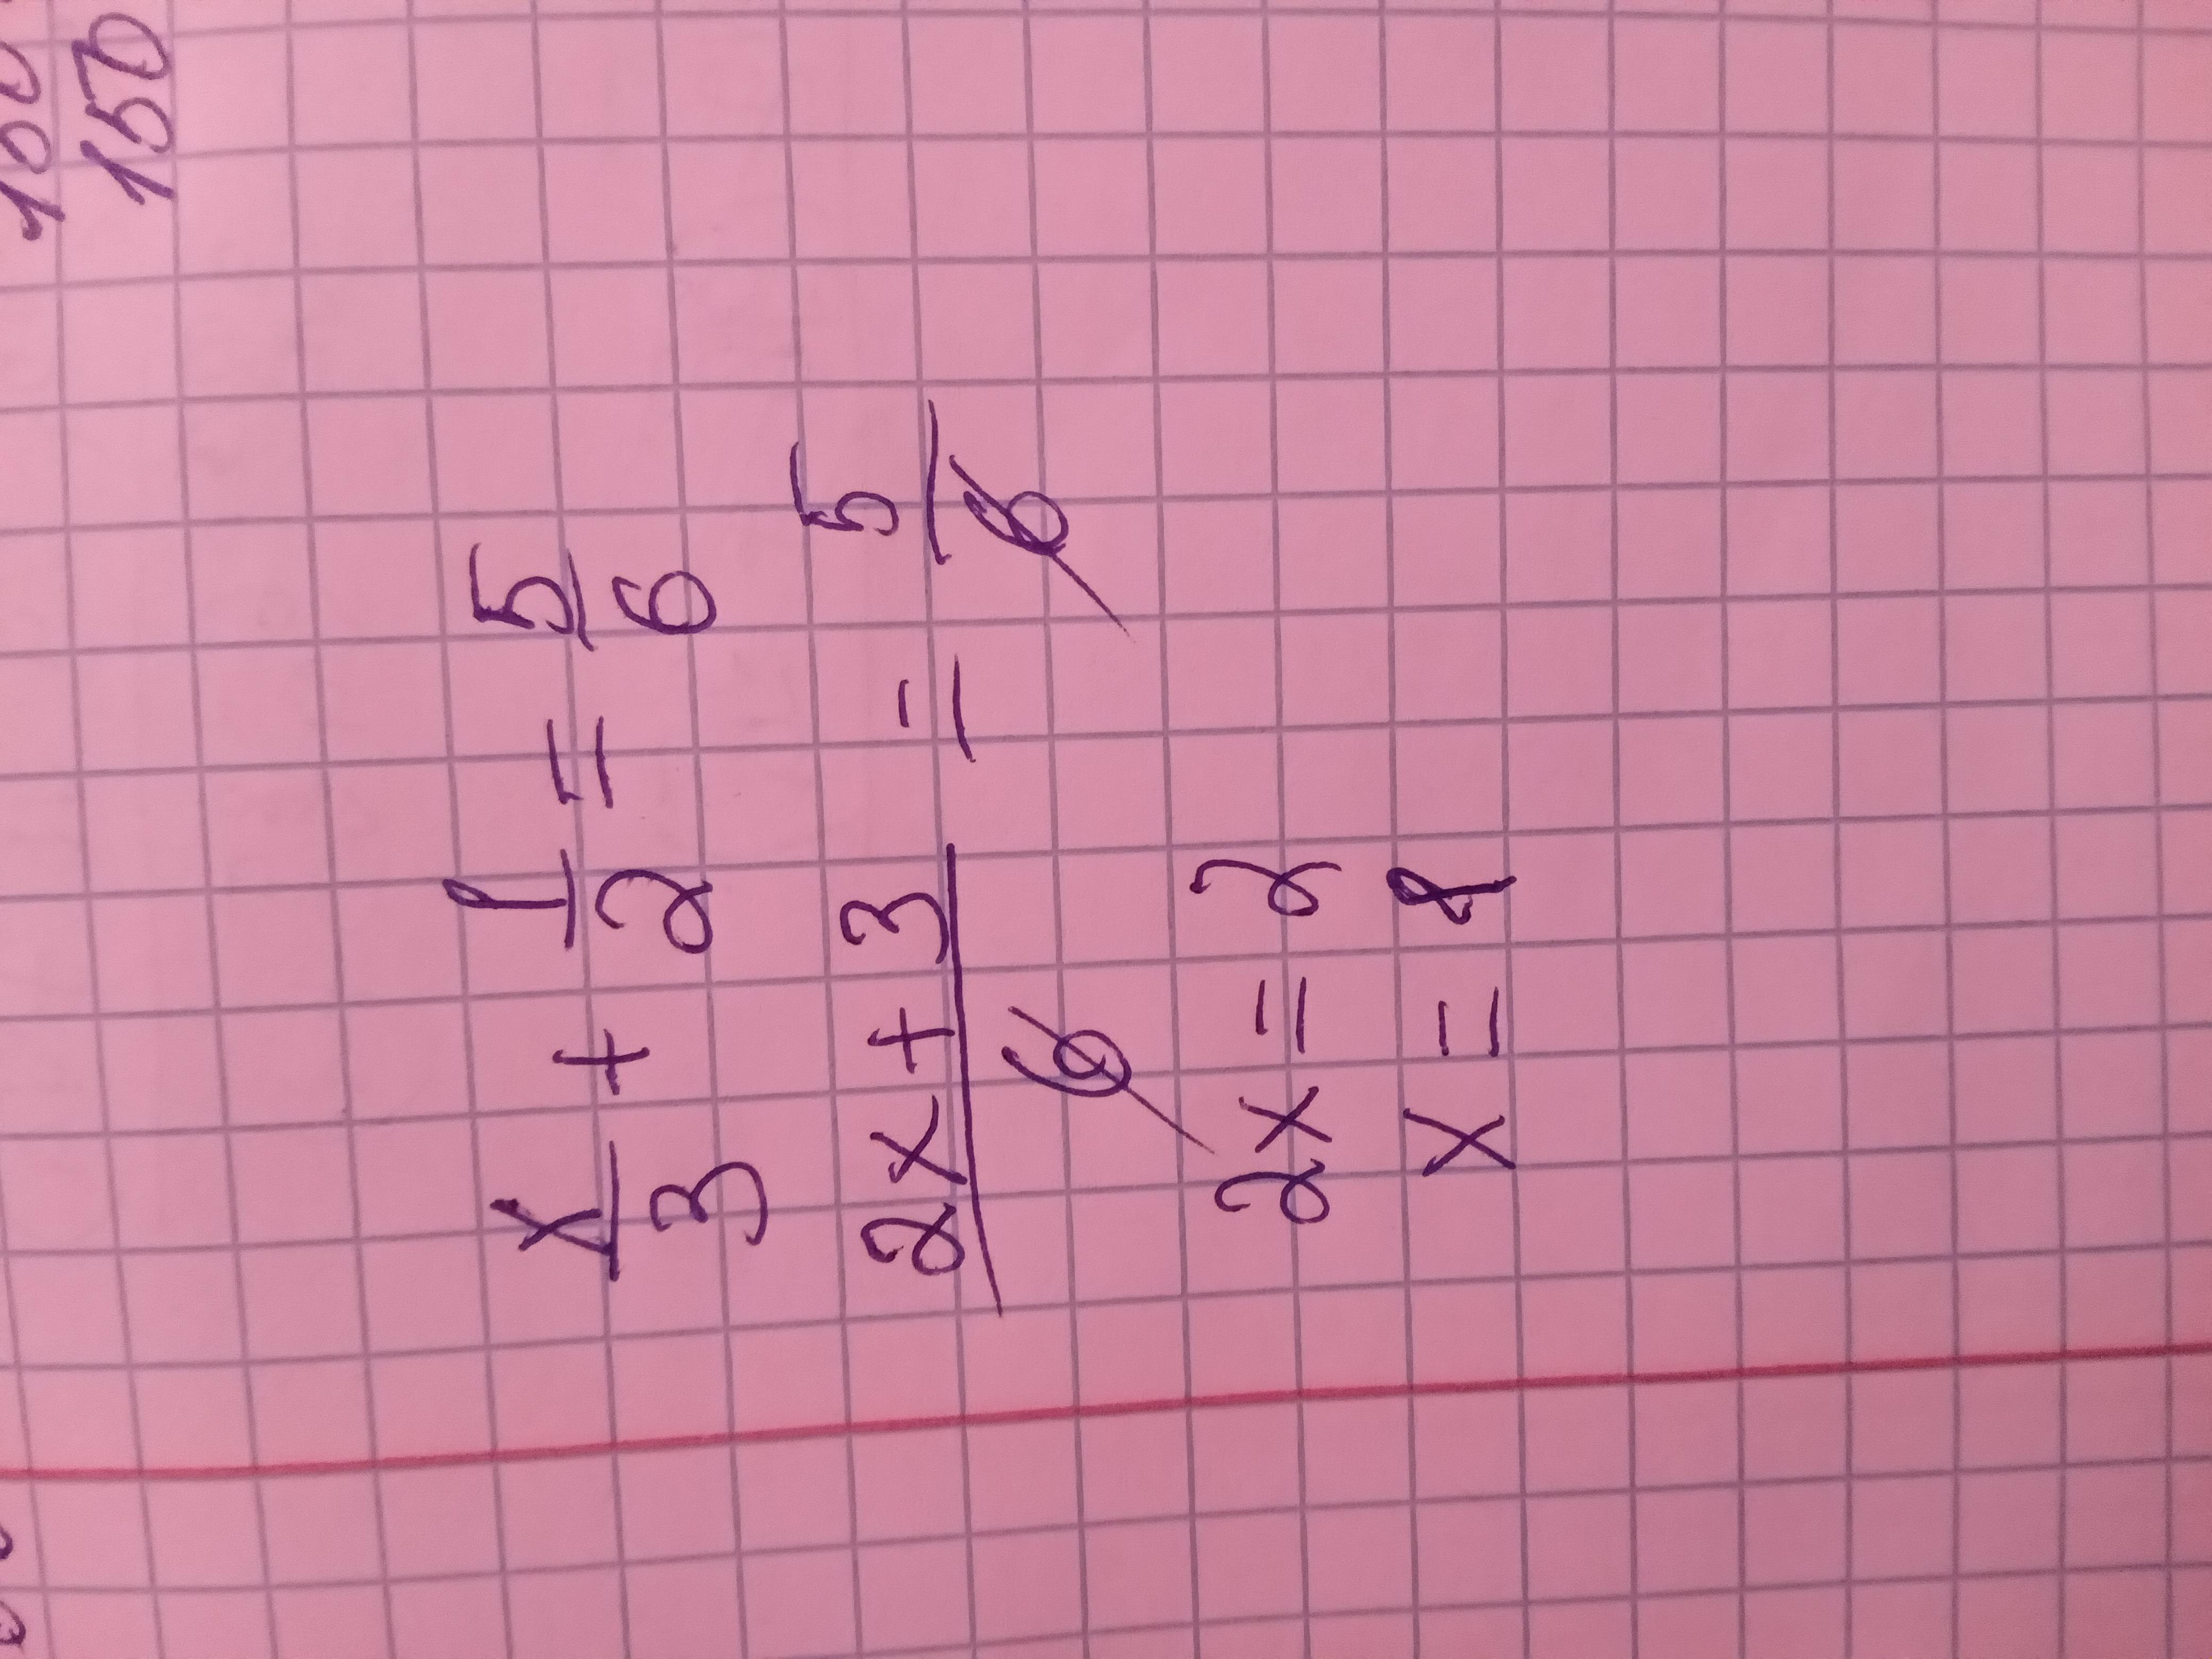 150
x/3 + 1/2 = 5/6
2x+3/6 = 5/6
2x = 2
x = 1